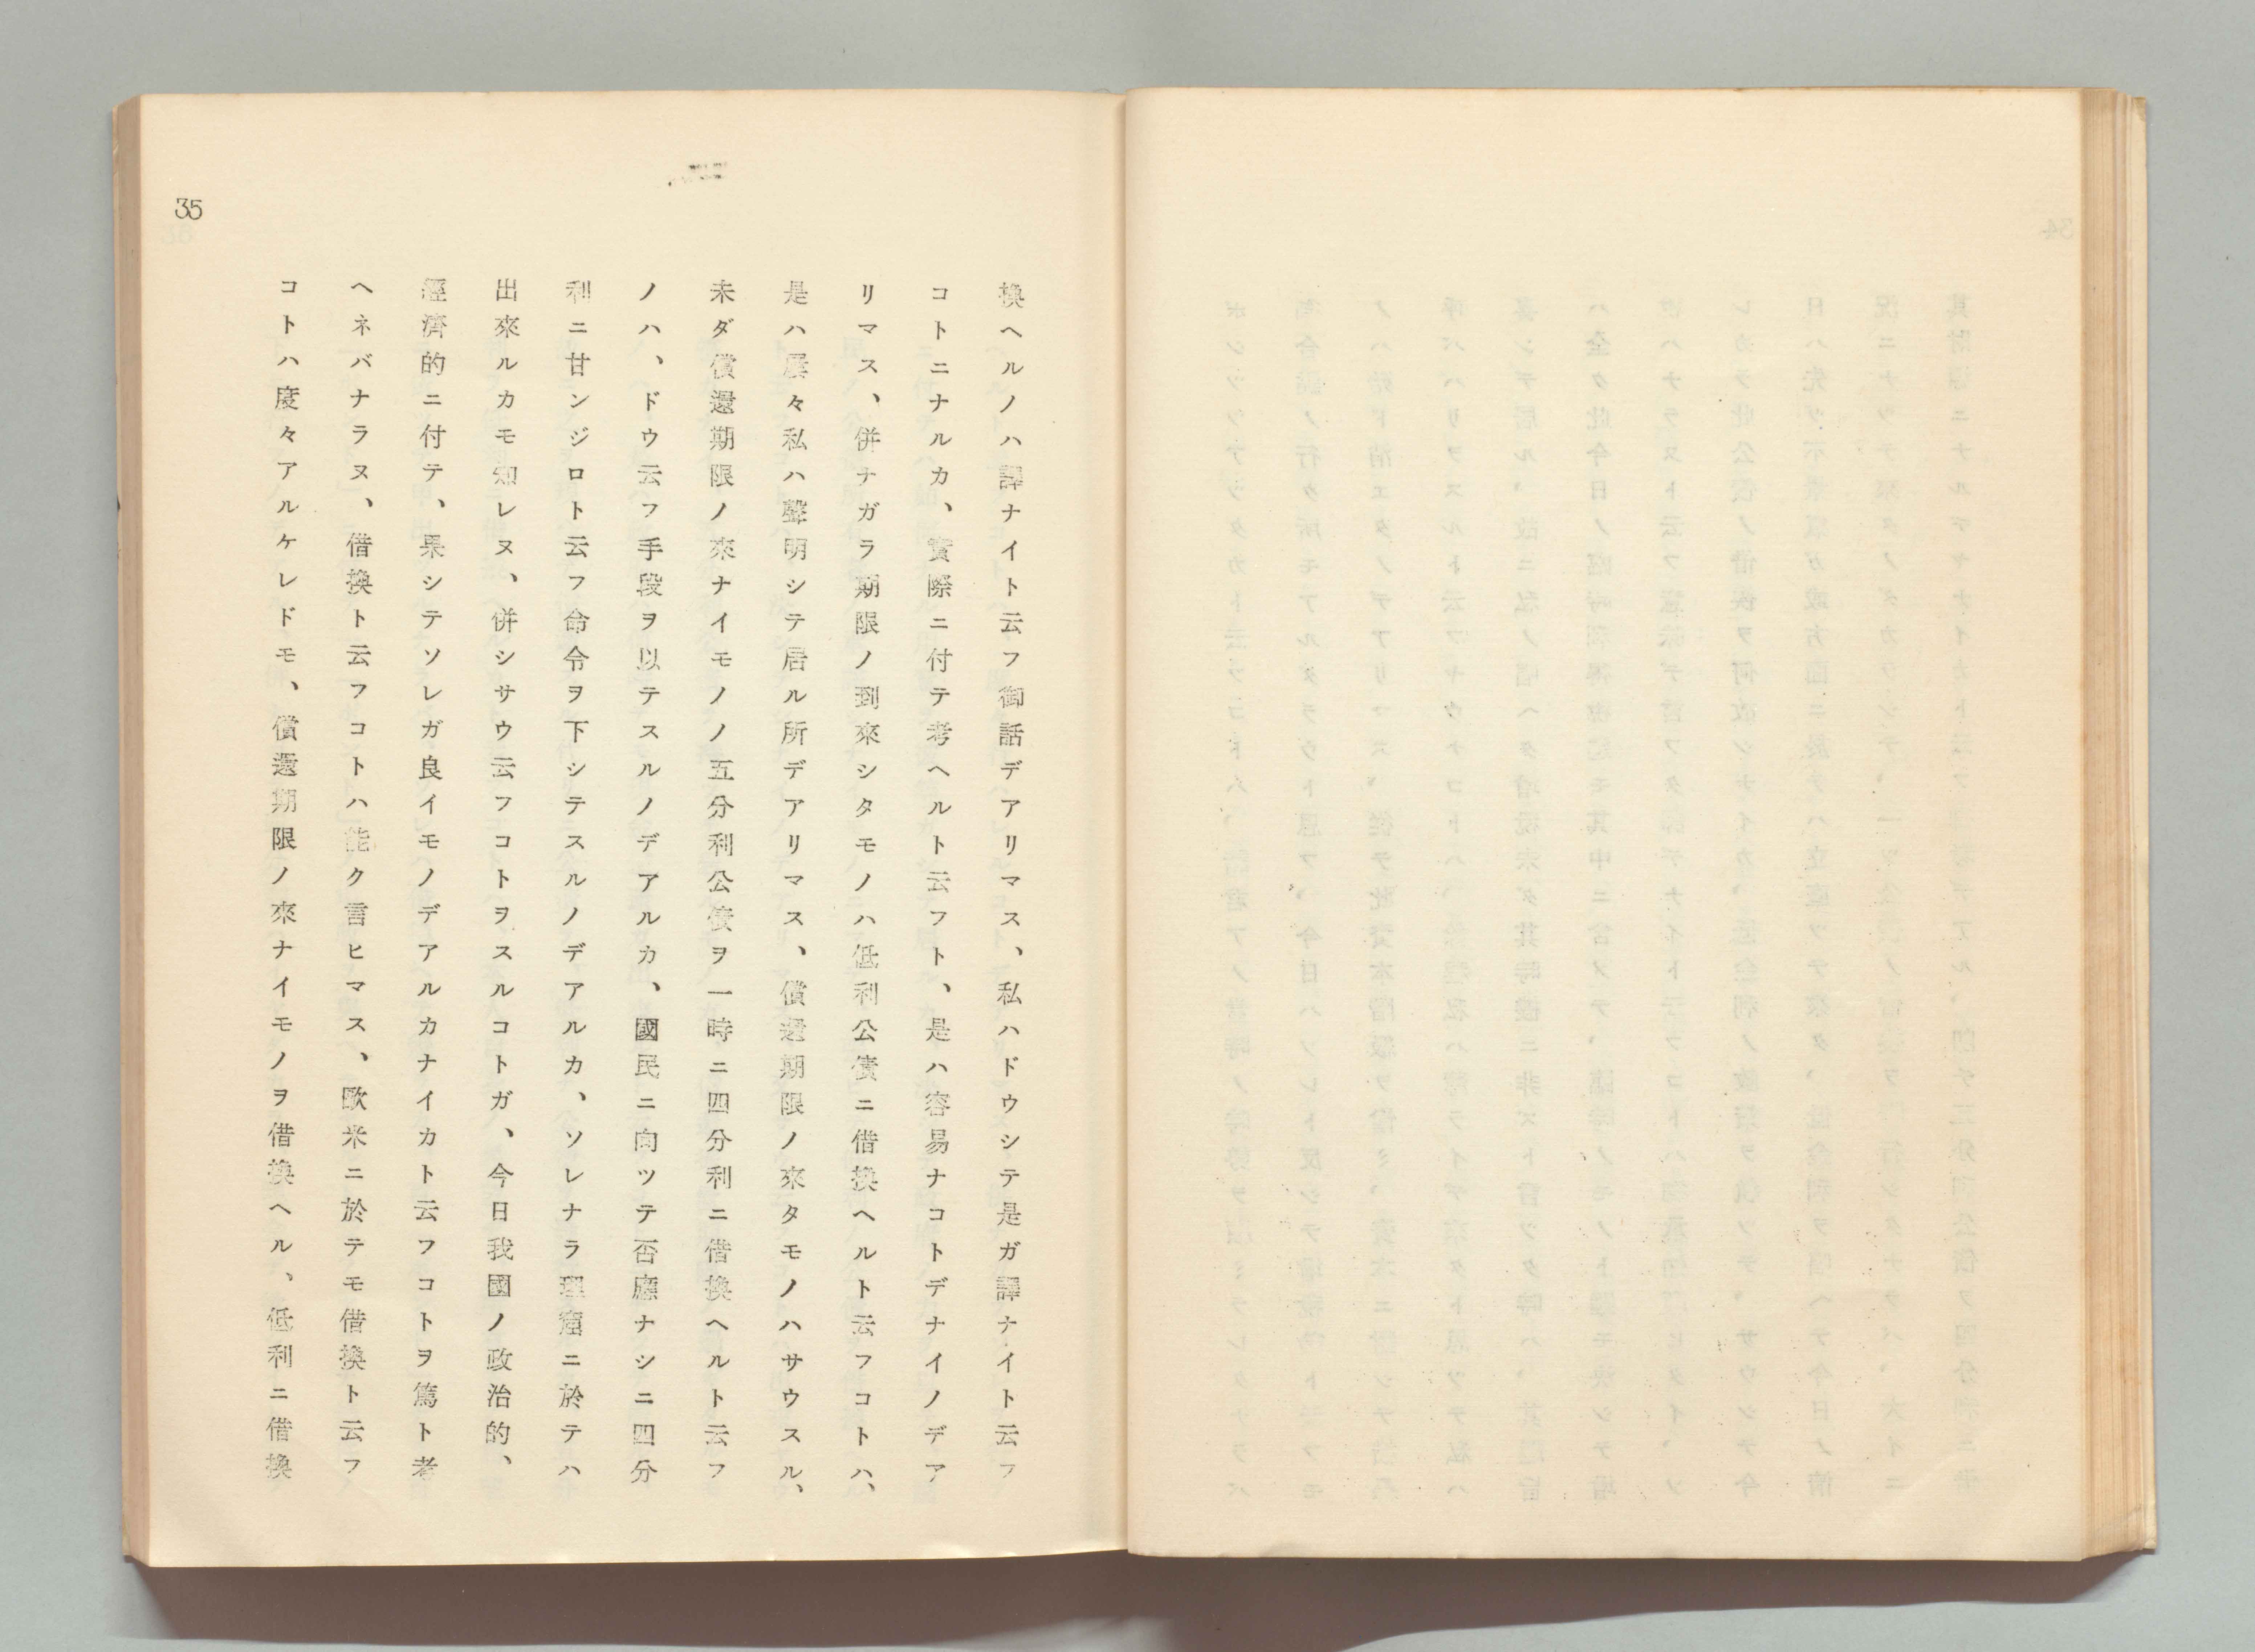 35
換ヘルノハ譯ナイト云フ御話デアリマス、私ハドウシテ是ガ譯ナイト云フ
コトニナルカ、實際ニ付テ考ヘルト云フト、是ハ容易ナコトデナイノデア
リマス、併ナガラ期限ノ到來シタモノハ低利公債ニ借換ヘルト云フコトハ、
是ハ屡々私ハ聲明シテ居ル所デアリマス、償還期限ノ來タモノハサウスル、
未ダ償還期限ノ來ナイモノノ五分利公債ヲ一時ニ四分利ニ借換ヘルト云フ
ノハ、ドウ云フ手段ヲ以テスルノデアルカ、國民ニ向ツテ否應ナシニ四分
利ニ甘ンジロト云フ命令ヲ下シテスルノデアルカ、ソレナラ理窟ニ於テハ
出來ルカモ知レヌ、併シサウ云フコトヲスルコトガ、今日我國ノ政治的、
經濟的ニ付テ、果シテソレガ良イモノデアルカナイカト云フコトヲ篤ト考
ヘネバナラヌ、借換ト云フコトハ能ク言ヒマス、歐米ニ於テモ借換ト云フ
コトハ度々アルケレドモ、償還期限ノ來ナイモノヲ借換ヘル、低利ニ借換